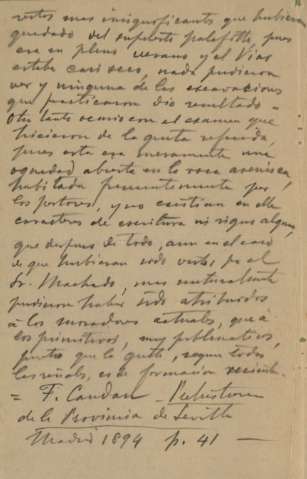 restos mas insignificantes que hubieran
quedado del supuesto palafitte, pues
era en pleno verano y el Vias
estaba casi seco, nada pudieron
ver y ninguna de las escavaciones
que practicaron dio resultado =
Otro tanto ocurrio con el examen que
hicieron de la gruta referida,
pues esta era meramente una
oquedad abierta en la roca arenisca,
habitada frecuentemente por
los pastores, y no existian en ella
caracteres de escritura ni signo alguno,
que despues de todo, aun en el caso
de que hubieran sido vistos por el
Sr. Machado, mas naturalmente
pudieron haber sido atribuidos
à los moradores actuales, que à
los primitivos, muy problematicos,
puesto que la gruta, segun todas
las señales, es de formacion reciente
= F. Candau - Prehistoria
de la Provincia de Sevilla
Madrid 1894 p. 41 —